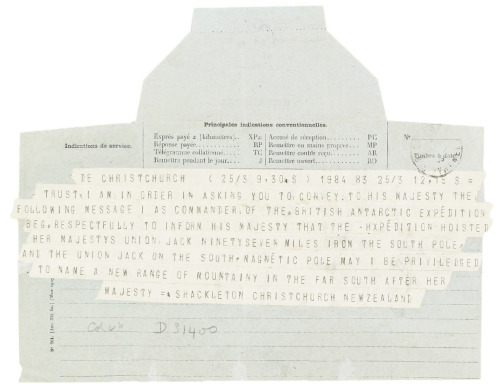 Principales indications conventionnelles.
Indications de service.
Exprès payé x [kilomètres].. XPx
Réponse payée... RP
Télégramme collationné... TC
Remettre pendant le jour... J
Accusé de réception... PC
Remettre en mains propres... MP
Remettre contre reçu... AR
Remettre ouvert... RO
N°
Timbre à date
DE CHRISTCHURCH (25/3 9,30,S) 1984 83 25/3 12,15 S =
TRUST, I AM IN ORDER IN ASKING YOU TO CONVEY, TO HIS MAJESTY THE
FOLLOWING MESSAGE I AS COMMANDER, OF THE BRITISH ANTARCTIC EXPEDITION
BEG, RESPECTFULLY TO INFORM HIS MAJESTY THAT THE -HXPEDITION HOISTED
HER MAJESTYS UNION JACK NINETYSEVEN MILES IRON THE SOUTH POLE,
AND THE UNION JACK ON THE SOUTH, MAGNETIC POLE MAY I BE PRIVILEDGED
TO NAME A NEW RANGE OF MOUNTAINY IN THE FAR SOUTH AFTER HER
MAJESTY = SHACKLETON CHRISTCHURCH NEWZEALAND
D 31400